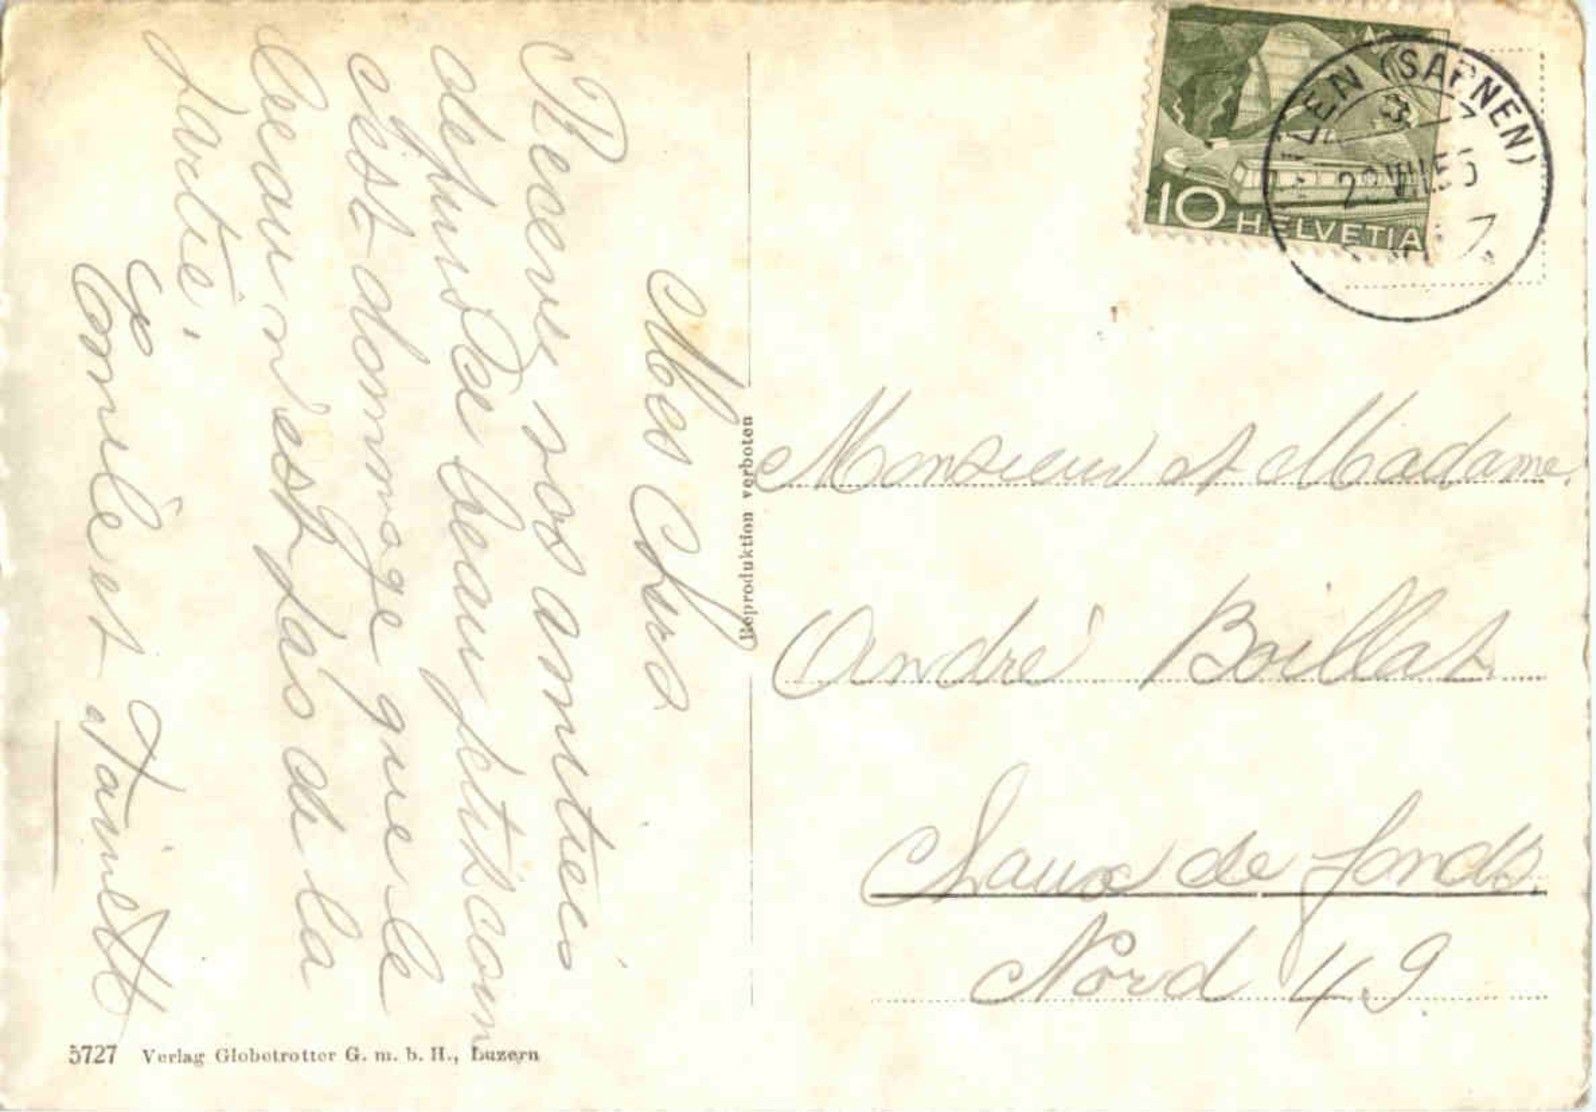 Mes Chers
Recevez nos amitiés
de funs de beau petit coin
c'est dommage que le
beau n'est pas de la
partie.
Emile et
Reproduktion verboten
10 HELVETIA
(SARNEN)
Monsieur et Madame
André Boillat
Chaux de fonds.
Nord 49
5727 Verlag Globetrotter G. m. b. H., Luzern